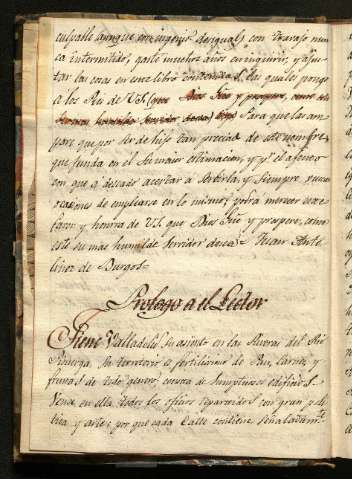 culpable aunque con ingenio desigual, con trabajo nun
ca intermitido, gasté muchos años en inquirir, y ajus
tar las cosas en este libro contenidas, las quales pongo
a los Pies de V.S. Para que las am
pare que por ser de hijo tan preciado de este nombre
que funda en el su maior estimacion, y por el afecto
con que a deseado acertar a servirla, y siempre
ocasiones de emplearse en lo mismo, podrá merecer
favor y honrra de V.S. que Dios gue y prospere, como
este su mas humilde servidor desea. Juan Anto
linez de Burgos
Prologo a el Lector
Tiene Valladolid su asiento en las Riveras del Rio
Pisuerga. Su territorio es fertilisimo de Pan, carnes, y
frutas de todo genero, consta de sumptuosos edificios.
Vense en ella todos los oficios repartidos con gran
y arte; por que cada calle contiene señaladamte